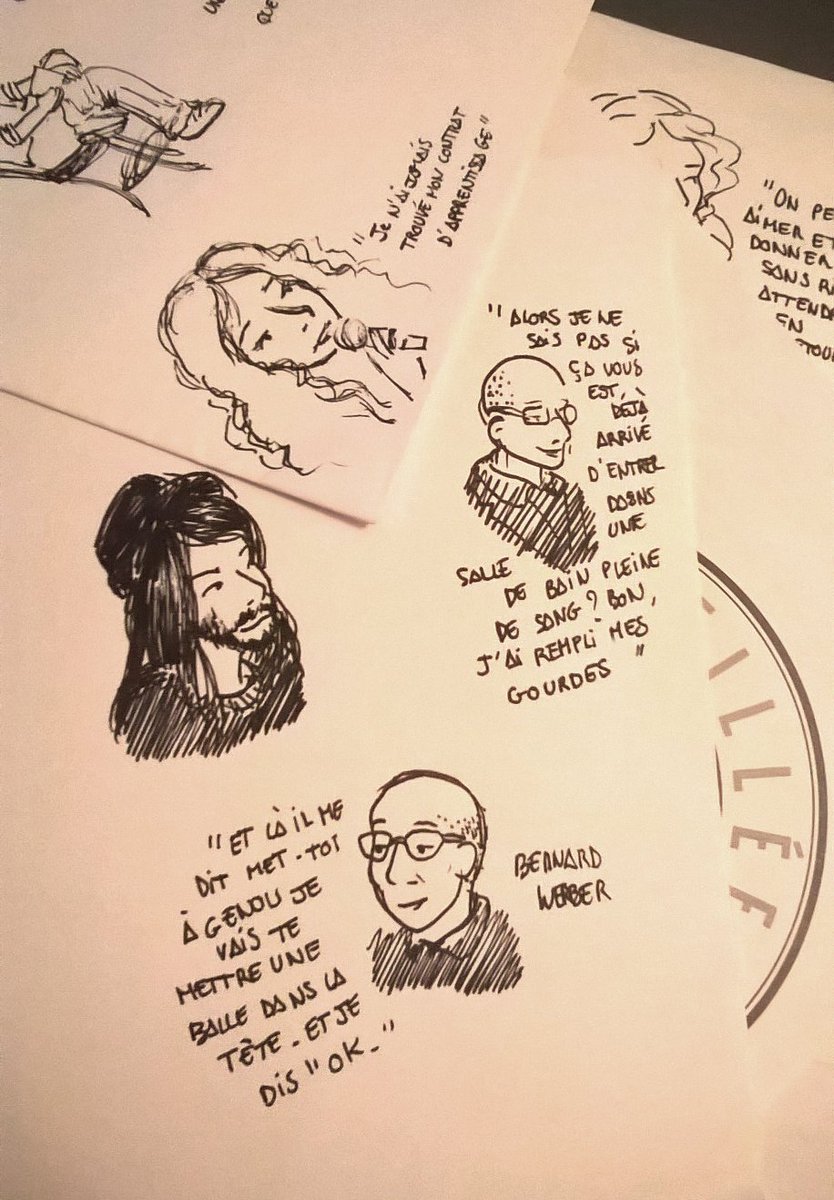 QUE
"JE N'AI JAMAIS
TROUVÉ MON CONTRAT
D'APPRENTISSAGE"
"ON PE
AIMER ET
DONNER
SANS R
ATTEND
EN
TOU
"ALORS JE NE
SAIS PAS SI
ÇA VOUS
EST,
DÉJÀ
ARRIVÉ
D'ENTRER
DANS
UNE
SALLE
DE BAIN PLEINE
DE SANG ? BON,
J'AI REMPLI MES
GOURDES"
ILLÉF
"ET LÀ IL ME
DIT MET-TOI
À GENOU JE
VAIS TE
METTRE UNE
BALLE DANS LA
TÊTE - ET JE
DIS "OK-"
BERNARD
WERBER